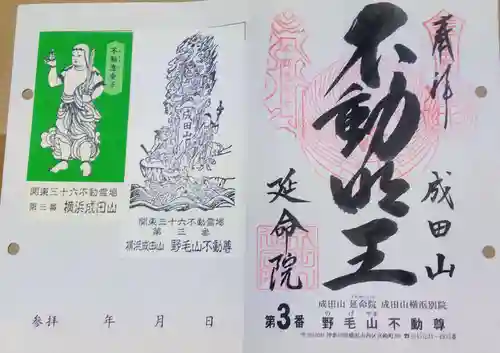 不動恵童子
関東三十六不動霊場
第三番 横浜成田山
成田山
関東三十六不動霊場
第三番
横浜成田山 野毛山不動尊
参拝 年 月 日
奉拝
不動明王
成田山
延命院
成田山 延命院 成田山横浜別院
第3番 野毛山不動尊